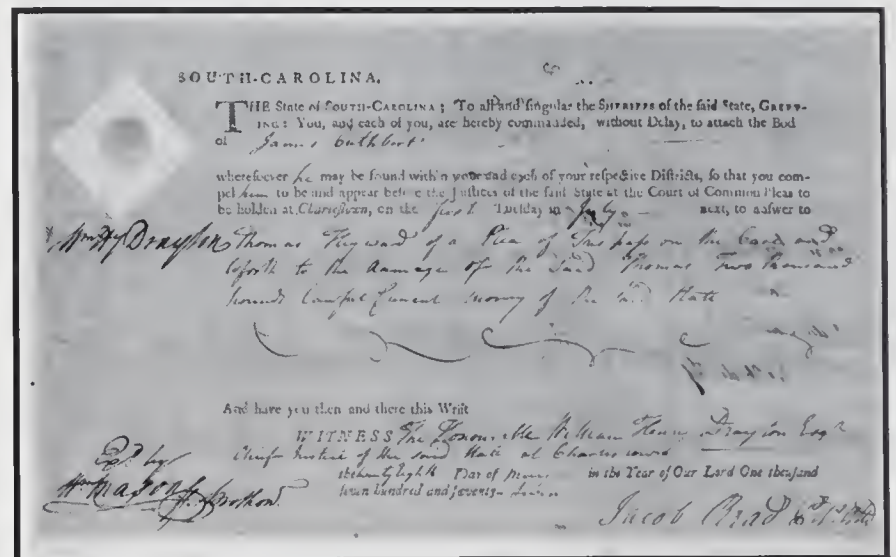 SOUTH-CAROLINA.
THE State of SOUTH-CAROLINA; To all and singular the SHERIFFS of the said State, GREET-
ING: You, and each of you, are hereby commanded, without Delay, to attach the Bod
of James Cuthbert
wheresoever he may be found within your and each of your respective Districts, so that you com-
pel him to be and appear before the Justices of the said State at the Court of Common Pleas to
be holden at Charlestown, on the first Tuesday in July next, to answer to
Wm Hy Drayton Thomas Heyward of a Plea of Trespass on the Case and
so forth to the damage of the said Thomas Two thousand
pounds lawful Current money of the said State
And have you then and there this Writ
WITNESS The Honourable William Henry Drayton Esqr
Chief Justice of the said State at Charlestown
the twenty eighth Day of in the Year of Our Lord One thousand
seven hundred and seventy-
Wm Mason
Jacob Read